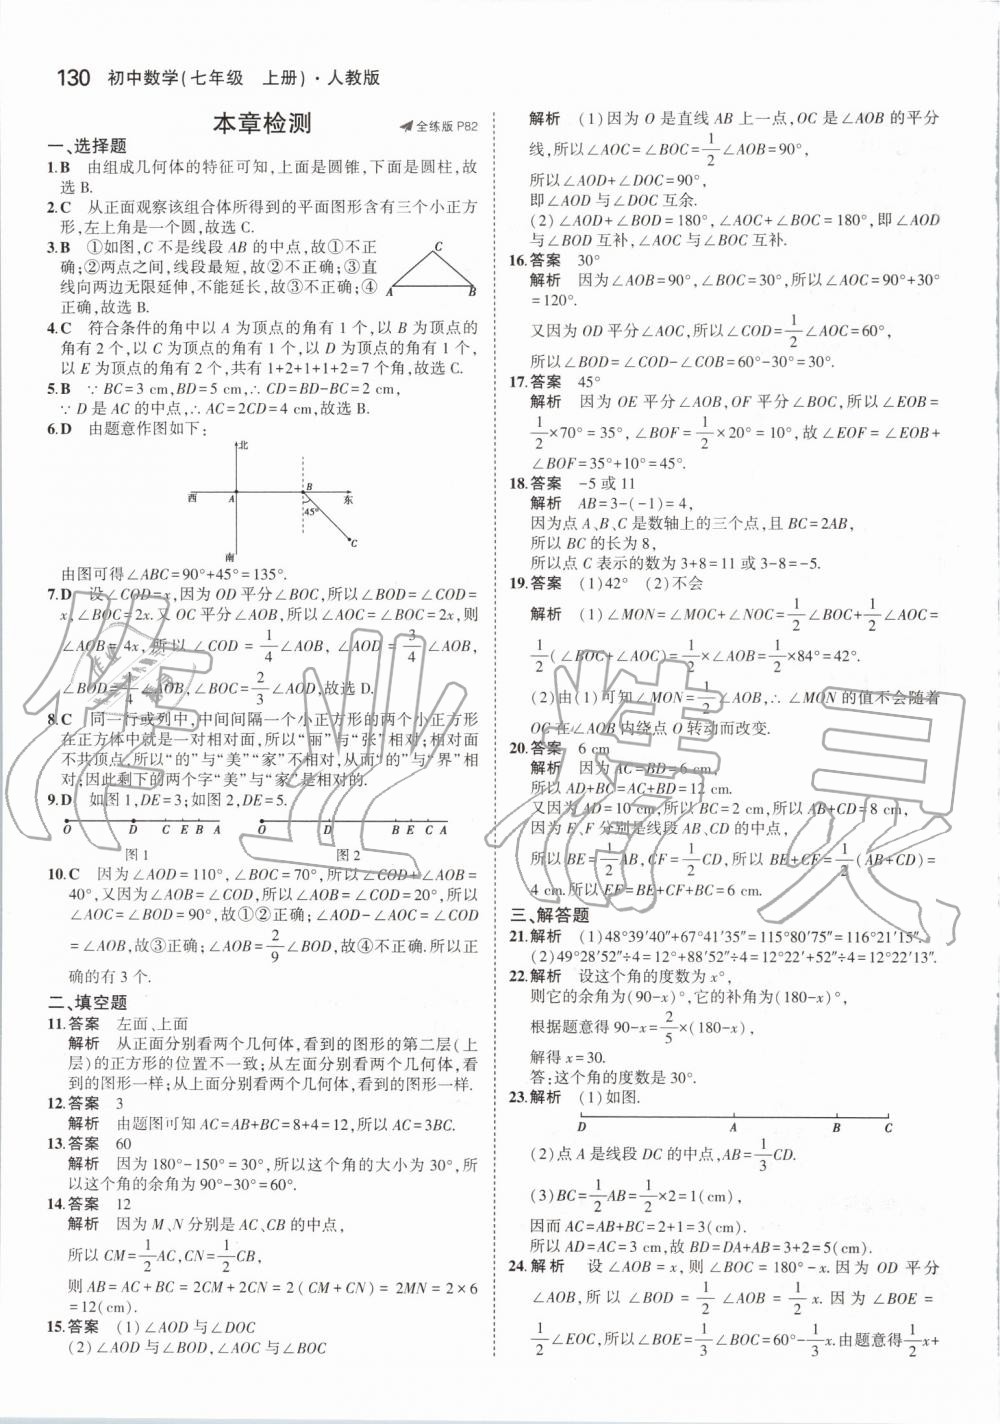 130 初中数学(七年级 上册)·人教版
本章检测 全练版 P82
一、选择题
1.B 由组成几何体的特征可知,上面是圆锥,下面是圆柱,故
选 B.
2.C 从正面观察该组合体所得到的平面图形含有三个小正方
形,左上角是一个圆,故选 C.
3.B ①如图,C 不是线段 AB 的中点,故①不正
确;②两点之间,线段最短,故②不正确;③直
线向两边无限延伸,不能延长,故③不正确;④
正确,故选 B.
C
A B
4.C 符合条件的角中以 A 为顶点的角有 1 个,以 B 为顶点的
角有 2 个,以 C 为顶点的角有 1 个,以 D 为顶点的角有 1 个,
以 E 为顶点的角有 2 个,共有 1+2+1+1+2=7 个角,故选 C.
5.B ∵BC=3 cm,BD=5 cm,∴CD=BD-BC=2 cm,
∵D 是 AC 的中点,∴AC=2CD=4 cm,故选 B.
6.D 由题意作图如下:
北
西 A B 东
45°
C
南
由图可得∠ABC=90°+45°=135°.
7.D 设∠COD=x,因为 OD 平分∠BOC,所以∠BOD=∠COD=
x,∠BOC=2x.又 OC 平分∠AOB,所以∠AOC=∠BOC=2x,则
∠AOB=4x,所以∠COD=1/4∠AOB,∠AOD=3/4∠AOB,
∠BOD=1/4∠AOB,∠BOC=2/3∠AOD,故选 D.
8.C 同一行或列中,中间间隔一个小正方形的两个小正方形
在正方体中就是一对相对面,所以“丽”与“张”相对;相对面
不共顶点,所以“的”与“美”“家”不相对,从而“的”与“界”相
对;因此剩下的两个字“美”与“家”是相对的.
9.D 如图 1,DE=3;如图 2,DE=5.
O D C E B A
图 1
O D B E C A
图 2
10.C 因为∠AOD=110°,∠BOC=70°,所以∠COD+∠AOB=
40°,又因为∠AOB=∠COD,所以∠AOB=∠COD=20°,所以
∠AOC=∠BOD=90°,故①②正确;∠AOD-∠AOC=∠COD
=∠AOB,故③正确;∠AOB=2/9∠BOD,故④不正确.所以正
确的有 3 个.
二、填空题
11.答案 左面、上面
解析 从正面分别看两个几何体,看到的图形的第二层(上
层)的正方形的位置不一致;从左面分别看两个几何体,看
到的图形一样;从上面分别看两个几何体,看到的图形一样.
12.答案 3
解析 由题图可知 AC=AB+BC=8+4=12,所以 AC=3BC.
13.答案 60
解析 因为 180°-150°=30°,所以这个角的大小为 30°,所
以这个角的余角为 90°-30°=60°.
14.答案 12
解析 因为 M、N 分别是 AC、CB 的中点,
所以 CM=1/2AC,CN=1/2CB,
则 AB=AC+BC=2CM+2CN=2(CM+CN)=2MN=2×6
=12(cm).
15.答案 (1)∠AOD 与∠DOC
(2)∠AOD 与∠BOD,∠AOC 与∠BOC
解析 (1)因为 O 是直线 AB 上一点,OC 是∠AOB 的平分
线,所以∠AOC=∠BOC=1/2∠AOB=90°,
所以∠AOD+∠DOC=90°,
即∠AOD 与∠DOC 互余.
(2)∠AOD+∠BOD=180°,∠AOC+∠BOC=180°,即∠AOD
与∠BOD 互补,∠AOC 与∠BOC 互补.
16.答案 30°
解析 因为∠AOB=90°,∠BOC=30°,所以∠AOC=90°+30°
=120°.
又因为 OD 平分∠AOC,所以∠COD=1/2∠AOC=60°,
所以∠BOD=∠COD-∠COB=60°-30°=30°.
17.答案 45°
解析 因为 OE 平分∠AOB,OF 平分∠BOC,所以∠EOB=
1/2×70°=35°,∠BOF=1/2×20°=10°,故∠EOF=∠EOB+
∠BOF=35°+10°=45°.
18.答案 -5 或 11
解析 AB=3-(-1)=4,
因为点 A、B、C 是数轴上的三个点,且 BC=2AB,
所以 BC 的长为 8,
所以点 C 表示的数为 3+8=11 或 3-8=-5.
19.答案 (1)42° (2)不会
解析 (1)∠MON=∠MOC+∠NOC=1/2∠BOC+1/2∠AOC=
1/2(∠BOC+∠AOC)=1/2×∠AOB=1/2×84°=42°.
(2)由(1)可知∠MON=1/2∠AOB,∴∠MON 的值不会随着
OC 在∠AOB 内绕点 O 转动而改变.
20.答案 6 cm
解析 因为 AC=BD=6 cm,
所以 AD+BC=AC+BD=12 cm.
又因为 AD=10 cm,所以 BC=2 cm,所以 AB+CD=8 cm,
因为 E、F 分别是线段 AB、CD 的中点,
所以 BE=1/2AB,CF=1/2CD,所以 BE+CF=1/2(AB+CD)=
4 cm.所以 EF=BE+CF+BC=6 cm.
三、解答题
21.解析 (1)48°39′40″+67°41′35″=115°80′75″=116°21′15″.
(2)49°28′52″÷4=12°+88′52″÷4=12°22′+52″÷4=12°22′13″.
22.解析 设这个角的度数为 x°,
则它的余角为(90-x)°,它的补角为(180-x)°,
根据题意得 90-x=2/5×(180-x),
解得 x=30.
答:这个角的度数是 30°.
23.解析 (1)如图.
D A B C
(2)点 A 是线段 DC 的中点,AB=1/3CD.
(3)BC=1/2AB=1/2×2=1(cm),
因而 AC=AB+BC=2+1=3(cm),
所以 AD=AC=3 cm,故 BD=DA+AB=3+2=5(cm).
24.解析 设∠AOB=x,则∠BOC=180°-x.因为 OD 平分
∠AOB,所以∠BOD=1/2∠AOB=1/2x.因为∠BOE=
1/2∠EOC,所以∠BOE=1/3∠BOC=60°-1/3x.由题意得1/2x+
作业精灵